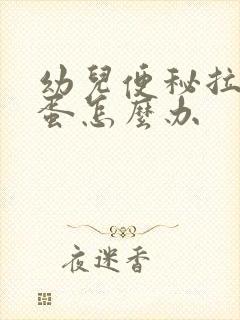 幼兒便秘拉
蛋怎麼办
夜迷香